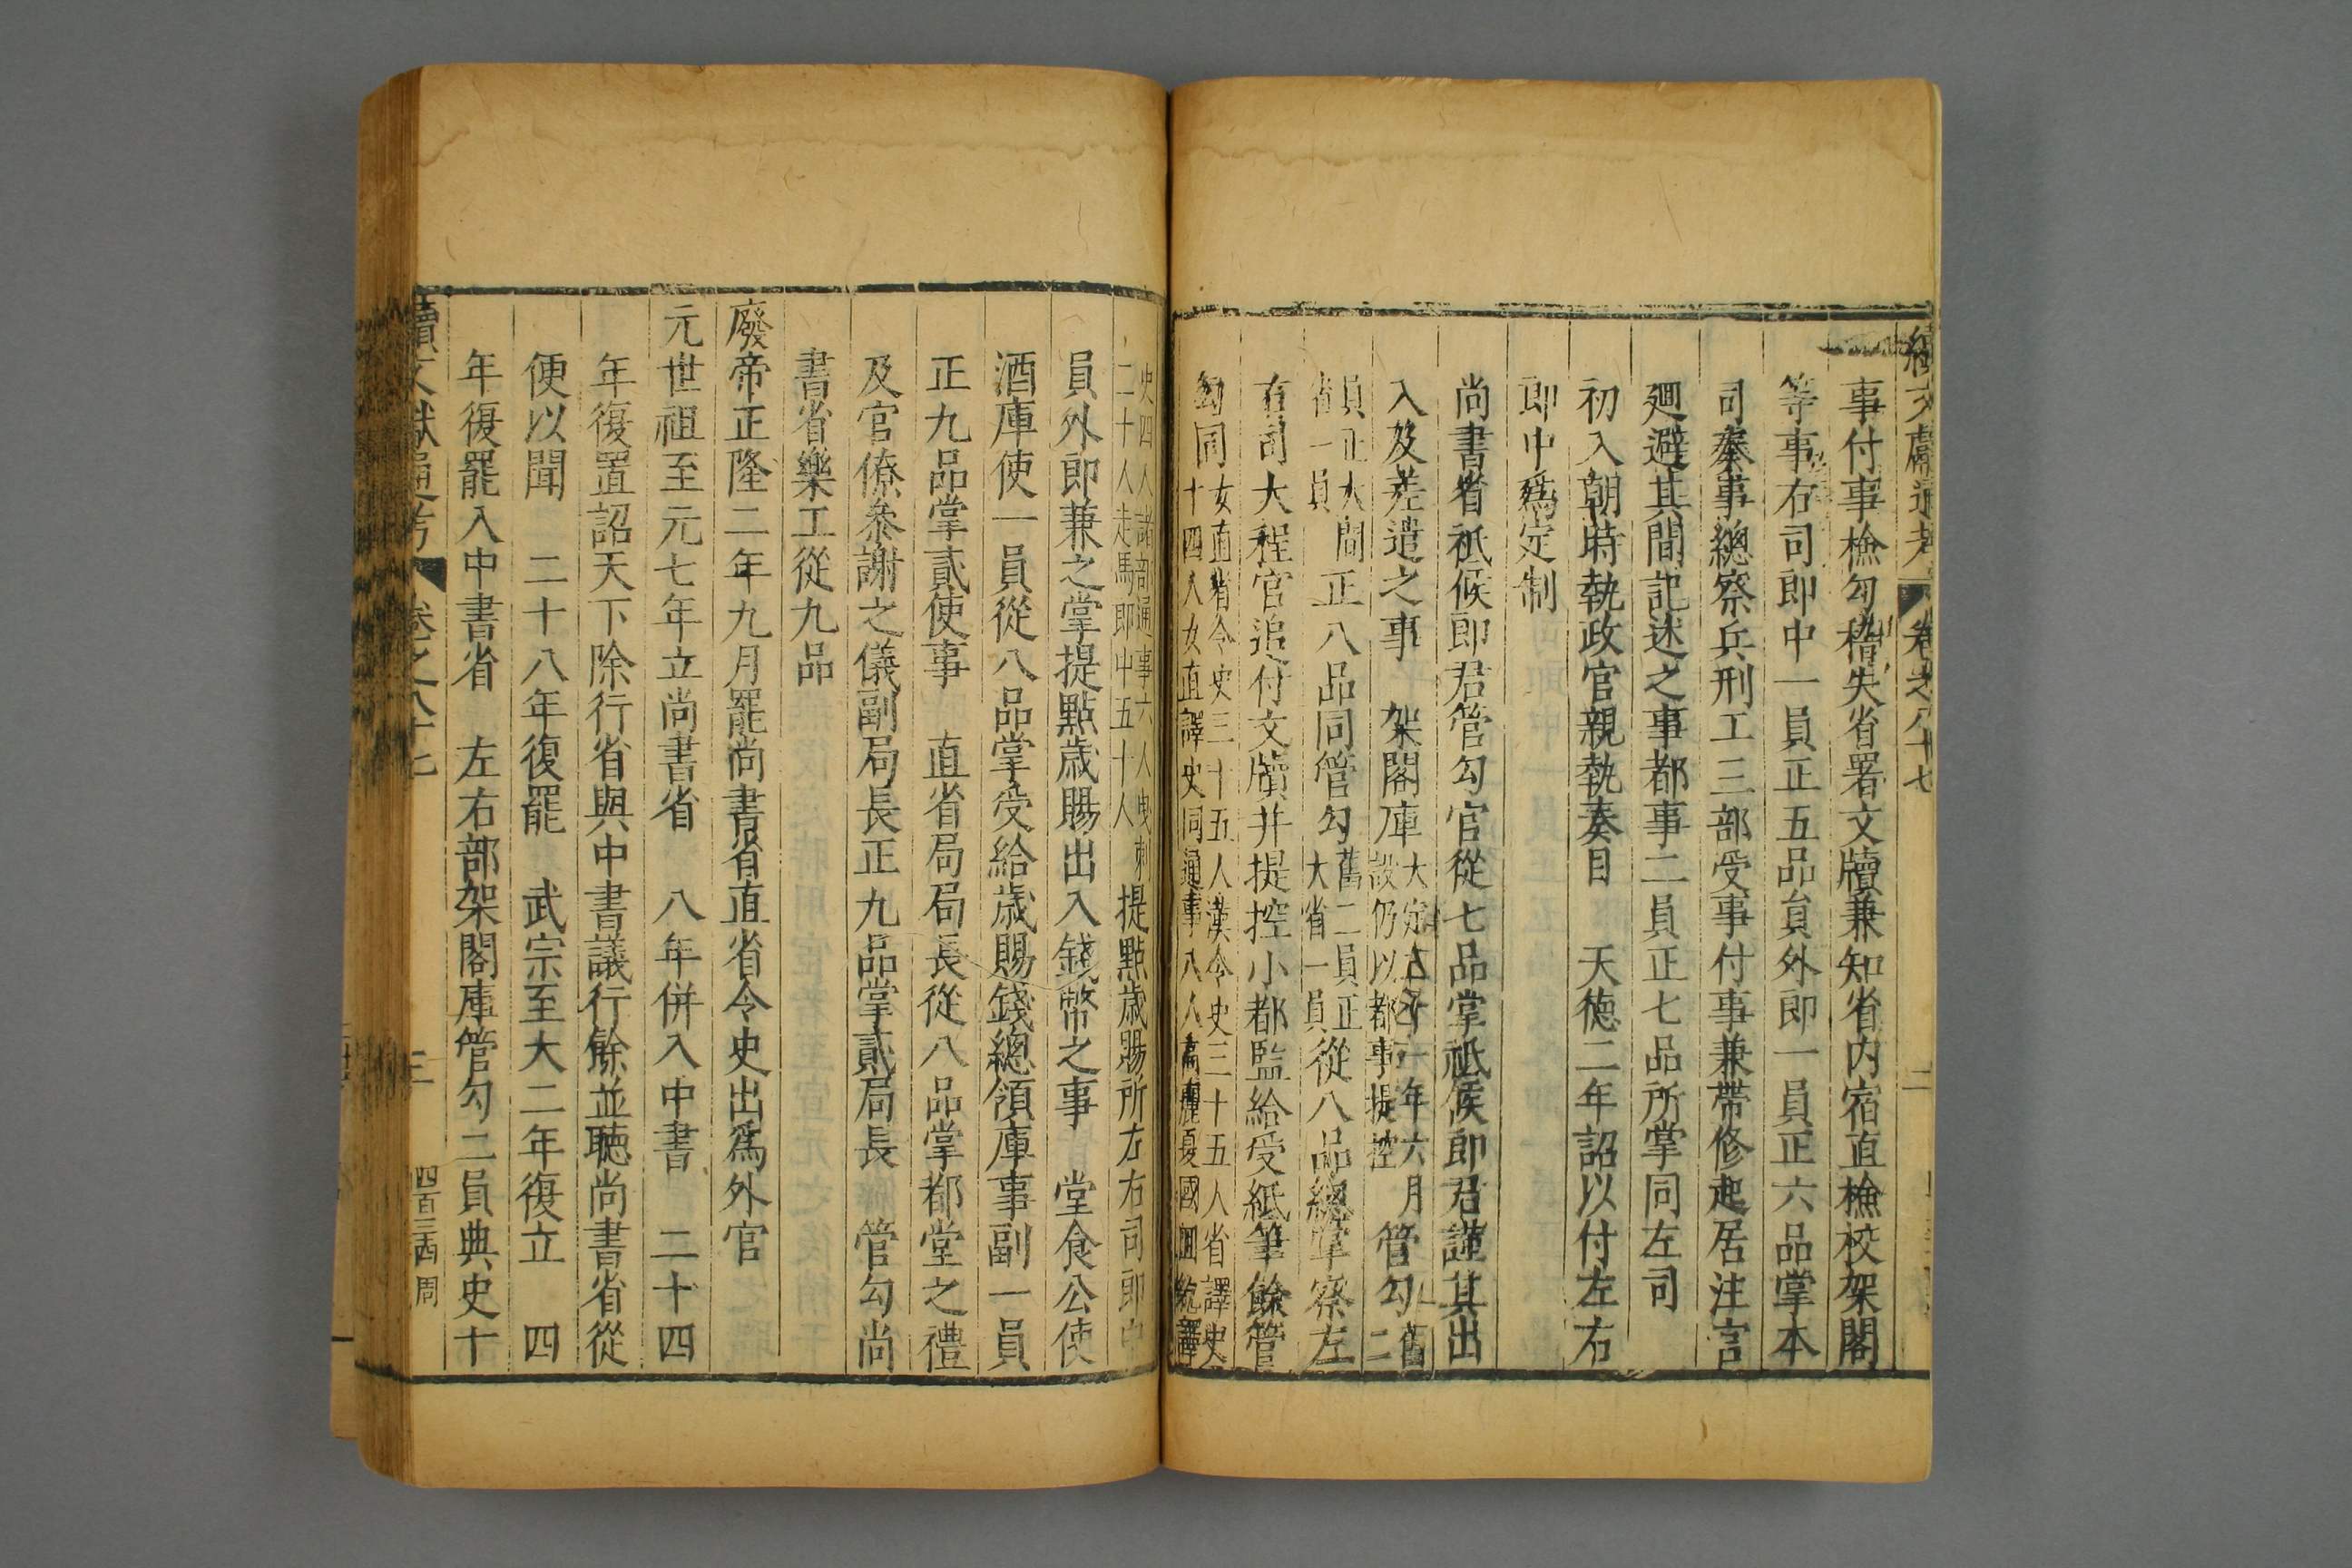 續文獻通考 卷之八十七 二
事付事檢勾稽失省署文牘兼知省内宿直檢校架閣
等事右司郎中一員正五品員外郎一員正六品掌本
司奏事總察兵刑工三部受事付事兼帶修起居注官
廻避其間記述之事都事二員正七品所掌同左司
初入朝時執政官親執奏目 天德二年詔以付左右
郎中爲定制
尚書省祗候郎君管勾官從七品掌祗候郎君謹其出
入及差遣之事 架閣庫大定二十一年六月設仍以都事提控 管勾舊二
員正大省一員間正八品同管勾舊二員正大省一員從八品總掌察左
右司大程官追付文牘并提控小都監給受紙筆餘管
勾同女直省令史三十五人漢令史三十五人省譯史十四人女直譯史同通事八人高麗夏國回紇譯
史四人諸部通事六人曳剌二十人走馬郎中五十人提點歲賜所左右司郎中
員外郎兼之掌提點歲賜出入錢幣之事 堂食公使
酒庫使一員從八品掌受給歲賜錢總領庫事副一員
正九品掌貳使事 直省局局長從八品掌都堂之禮
及官僚叅謝之儀副局長正九品掌貳局長 管勾尚
書省樂工從九品
廢帝正隆二年九月罷尚書省直省令史出爲外官
元世祖至元七年立尚書省 八年併入中書 二十四
年復置詔天下除行省與中書議行餘並聽尚書省從
便以聞 二十八年復罷 武宗至大二年復立 四
年復罷入中書省 左右部架閣庫管勾二員典史十
續文獻通考 卷之八十七 三 四百三四 周